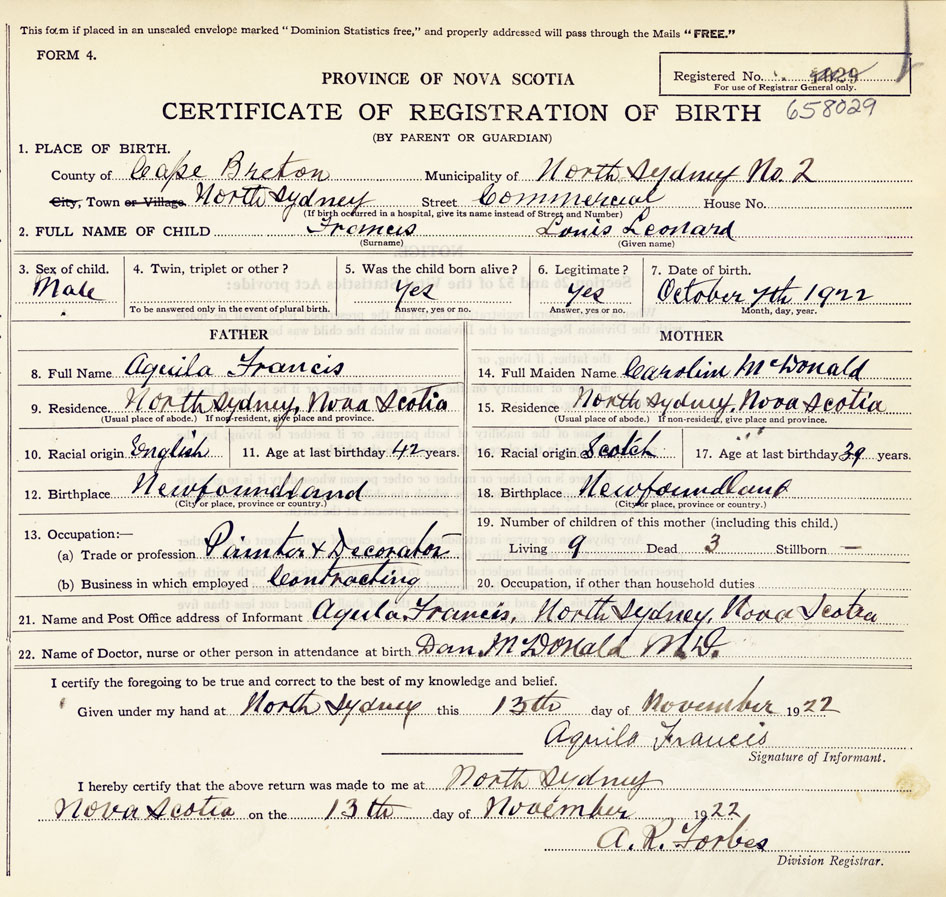 This form if placed in an unsealed envelope marked "Dominion Statistics free," and properly addressed will pass through the Mails "FREE."
FORM 4.
PROVINCE OF NOVA SCOTIA
Registered No.
For use of Registrar General only.
CERTIFICATE OF REGISTRATION OF BIRTH 658029
(BY PARENT OR GUARDIAN)
1. PLACE OF BIRTH.
County of Cape Breton Municipality of North Sydney No. 2
City, Town or Village North Sydney Street Commercial House No.
(If birth occurred in a hospital, give its name instead of Street and Number)
2. FULL NAME OF CHILD Francis Louis Leonard
(Surname) (Given name)
3. Sex of child. 4. Twin, triplet or other? 5. Was the child born alive? 6. Legitimate? 7. Date of birth.
Male Yes Yes October 7th 1922
To be answered only in the event of plural birth. Answer, yes or no. Answer, yes or no. Month, day, year.
FATHER MOTHER
8. Full Name Aquila Francis 14. Full Maiden Name Carolin McDonald
9. Residence North Sydney, Nova Scotia 15. Residence North Sydney, Nova Scotia
(Usual place of abode.) If non-resident, give place and province. (Usual place of abode.) If non-resident, give place and province.
10. Racial origin English 11. Age at last birthday 42 years. 16. Racial origin Scotch 17. Age at last birthday 39 years.
12. Birthplace Newfoundland 18. Birthplace Newfoundland
(City or place, province or country.) (City or place, province or country.)
13. Occupation:— 19. Number of children of this mother (including this child.)
(a) Trade or profession Painter & Decorator Living 9 Dead 3 Stillborn —
(b) Business in which employed Contracting 20. Occupation, if other than household duties
21. Name and Post Office address of Informant Aquila Francis, North Sydney, Nova Scotia
22. Name of Doctor, nurse or other person in attendance at birth Dan McDonald M.D.
I certify the foregoing to be true and correct to the best of my knowledge and belief.
Given under my hand at North Sydney this 13th day of November 1922
Aquila Francis
Signature of Informant.
I hereby certify that the above return was made to me at North Sydney
Nova Scotia on the 13th day of November 1922
A. R. Forbes
Division Registrar.